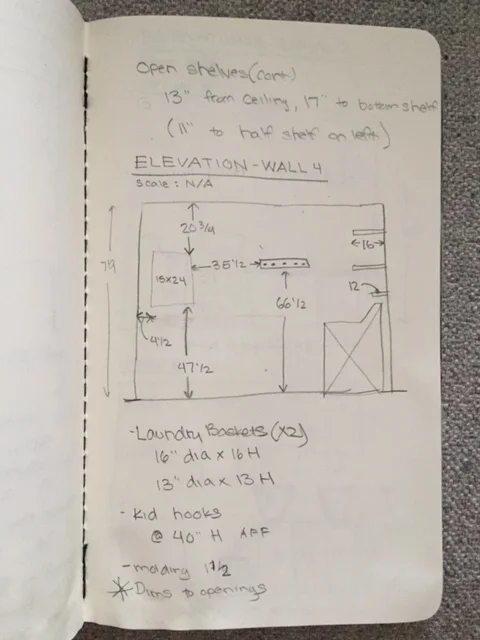 Open shelves (cont)
13" from ceiling, 17" to bottom shelf
(11" to half shelf on left)
ELEVATION - WALL 4
scale: N/A
20 3/4
16
35 1/2
15x24
12
66 1/2
4 1/2
47 1/2
- Laundry Baskets (x2)
16" dia x 16 H
13" dia x 13 H
- Kid hooks
@ 40" H AFF
- molding 1 1/2
* Dims to openings